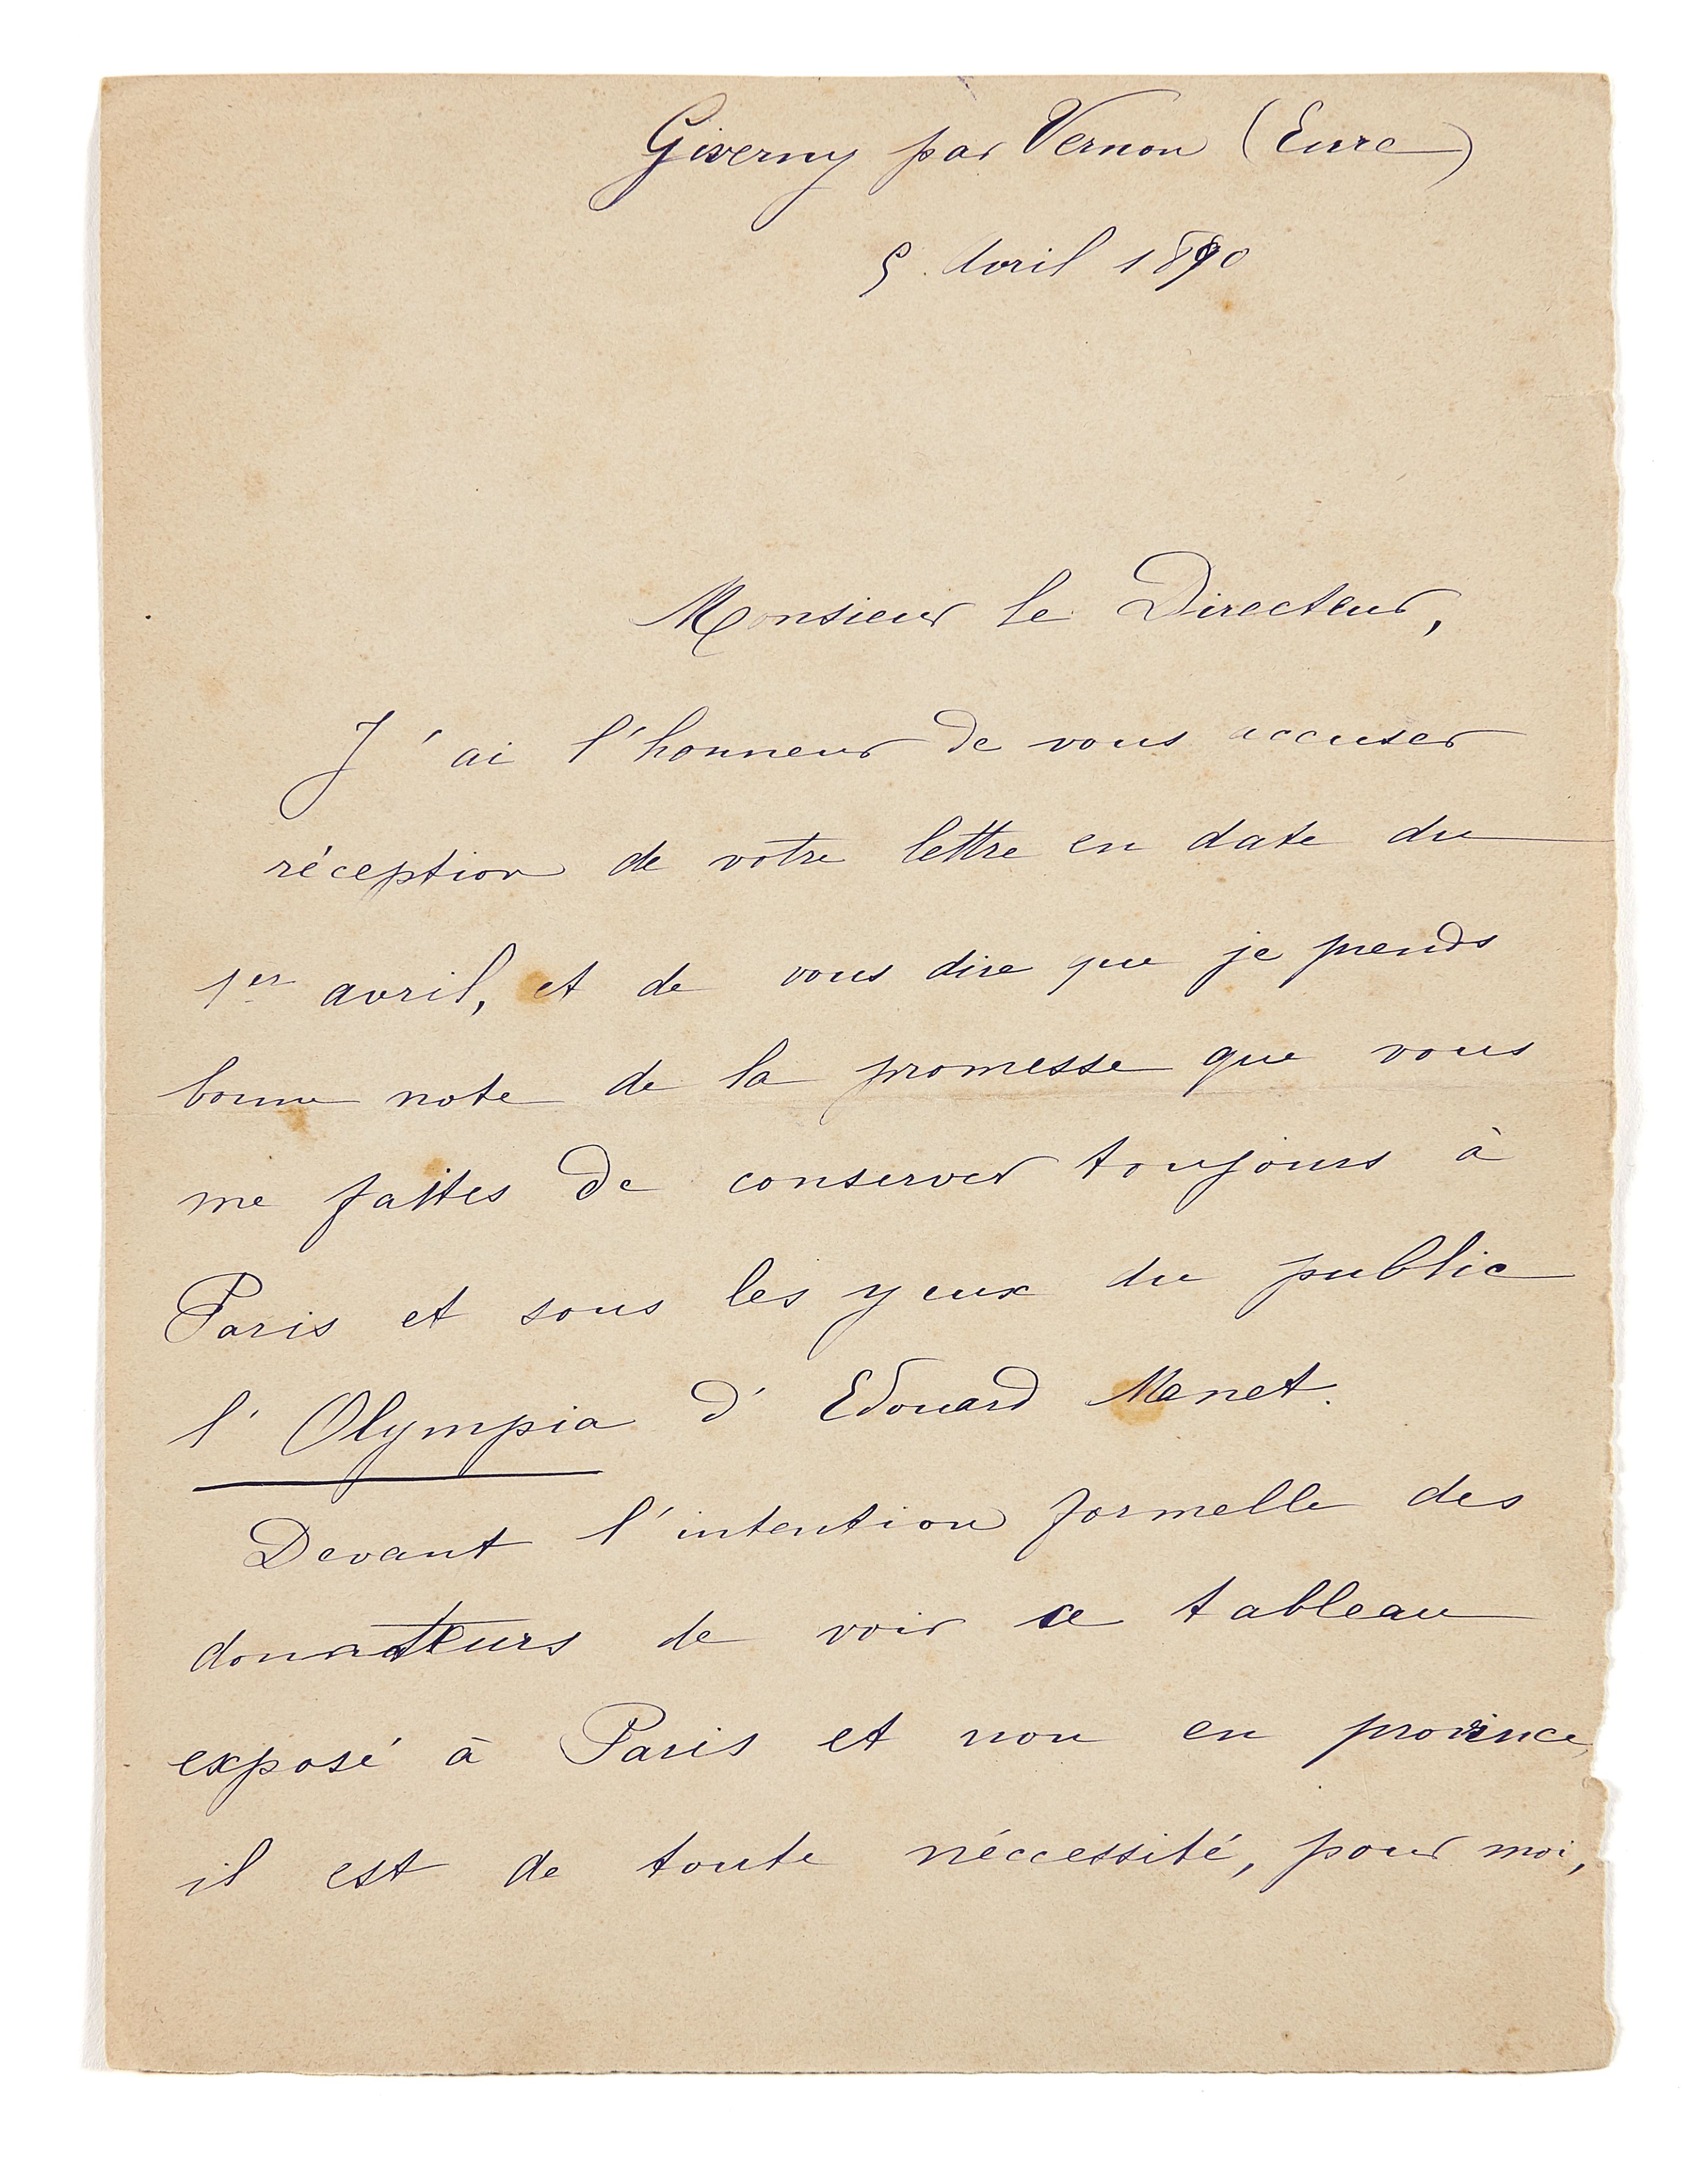 Giverny par Vernon (Eure)
5 Avril 1890
Monsieur le Directeur,
J'ai l'honneur de vous accuser
réception de votre lettre en date du
1er avril, et de vous dire que je prends
bonne note de la promesse que vous
me faites de conserver toujours à
Paris et sous les yeux du public
l'Olympia d'Edouard Manet.
Devant l'intention formelle des
donnateurs de voir ce tableau
exposé à Paris et non en province,
il est de toute néccessité, pour moi,